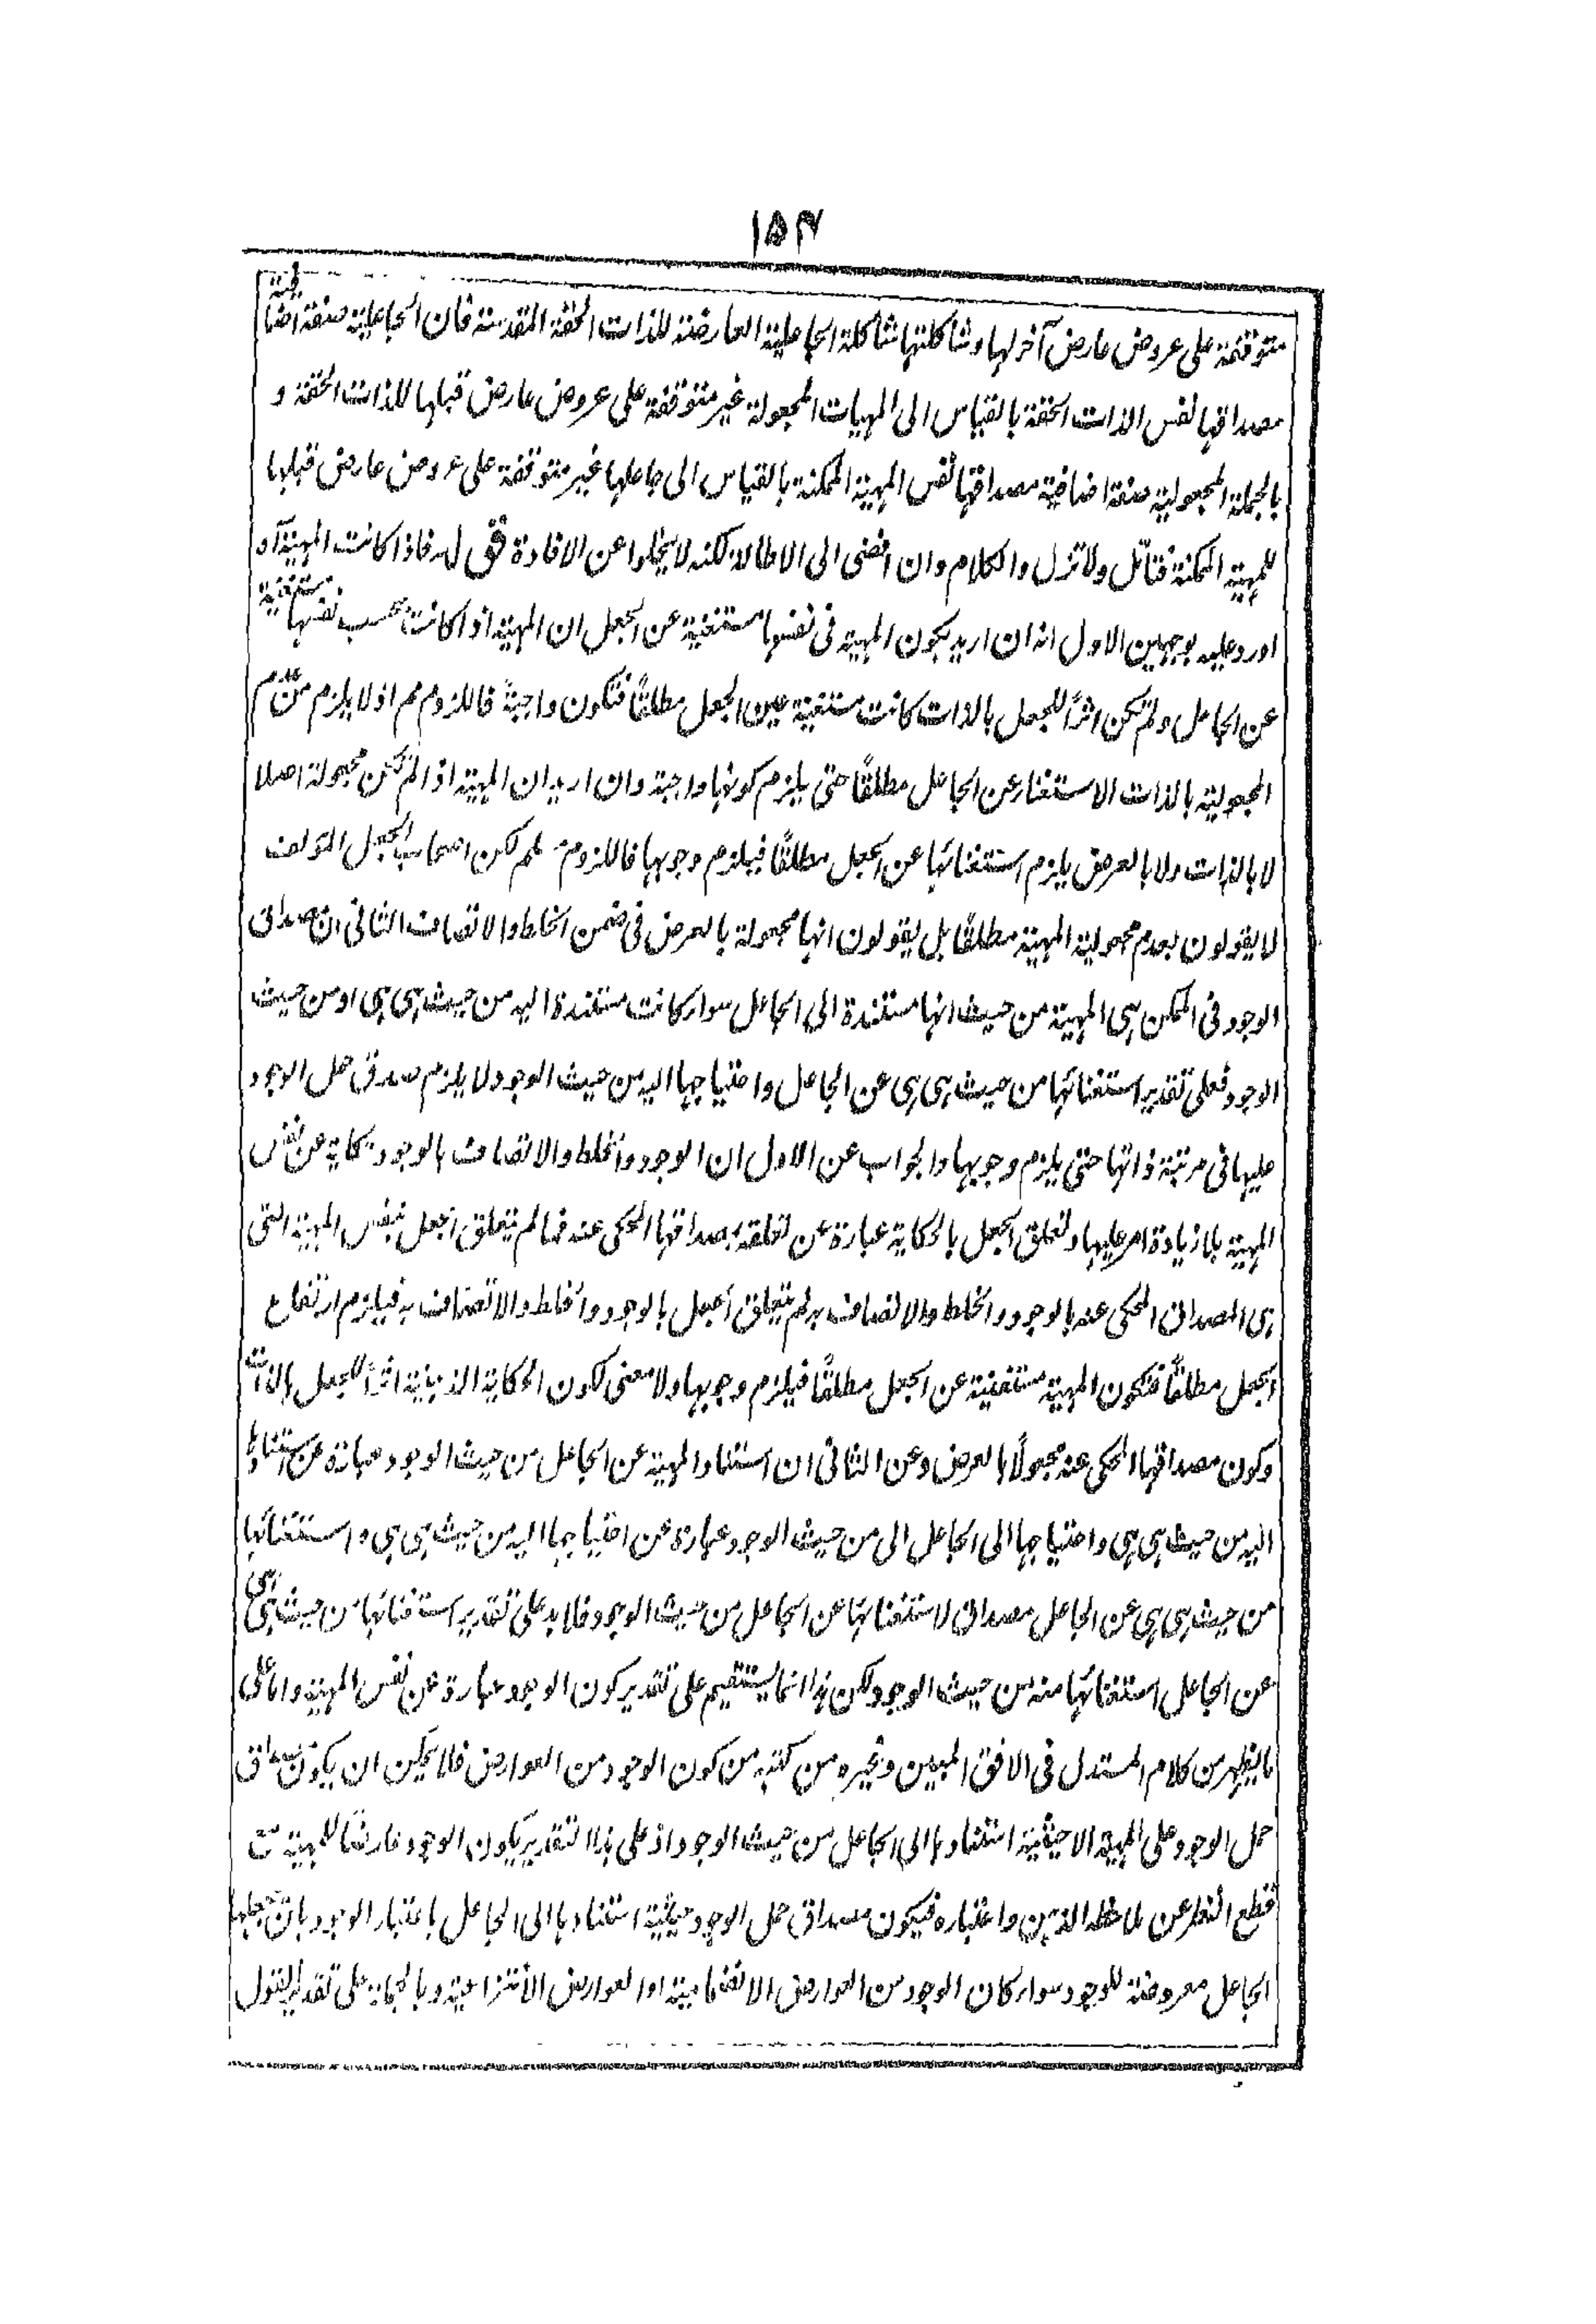 ١٥٤
متوقفة على عروض عارض آخر لها وشاكلتها شاكلة الجاعلية العارضة للذات الحقة المقدسة فان الجاعلية صفة اضافية
مصداقها نفس الذات الحقة بالقياس الى المهيات المجعولة غير متوقفة على عروض عارض قبلها للذات الحقة و
بالجملة المجعولية صفة اضافية مصداقها نفس المهية الممكنة بالقياس الى جاعلها غير متوقفة على عروض عارض قبلها
للمهية الممكنة فتأمل ولا تزل والكلام وان افضى الى الاطالة لكنه لا يخلوا عن الافادة قوله فاذا كانت المهية آه
اورد عليه بوجهين الاول انه ان اريد بكون المهية فى نفسها مستغنية عن الجعل ان المهية اذا كانت بحسب نفسها مستغنية
عن الجاعل ولم تكن اثراً للجعل بالذات كانت مستغنية عن الجعل مطلقاً فتكون واجبةً فاللزوم مم اذ لا يلزم من عدم
المجعولية بالذات الاستغناء عن الجاعل مطلقاً حتى يلزم كونها واجبة وان اريد ان المهية اذا لم تكن مجعولة اصلا
لا بالذات ولا بالعرض يلزم استغنائها عن الجعل مطلقاً فيلزم وجوبها فاللزوم مسلم لكن اصحاب الجعل المؤلف
لا يقولون بعدم مجعولية المهية مطلقاً بل يقولون انها مجعولة بالعرض فى ضمن الخلط والاتصاف الثانى ان مصداق
الوجود فى الممكن هى المهية من حيث انها مستندة الى الجاعل سواء كانت مستندة اليه من حيث هى هى او من حيث
الوجود فعلى تقدير استغنائها من حيث هى هى عن الجاعل واحتياجها اليه من حيث الوجود لا يلزم صدق حمل الوجود
عليها فى مرتبة ذاتها حتى يلزم وجوبها والجواب عن الاول ان الوجود والخلط والاتصاف بالوجود حكاية عن نفس
المهية بلا زيادة امر عليها وتعلق الجعل بالحكاية عبارة عن تعلقه بمصداقها المحكى عنه فما لم يتعلق الجعل بنفس المهية التى
هى المصداق المحكى عنه بالوجود والخلط والاتصاف به لم يتعلق الجعل بالوجود والخلط والاتصاف به فيلزم ارتفاع
الجعل مطلقاً فتكون المهية مستغنية عن الجعل مطلقاً فيلزم وجوبها ولا معنى لكون الحكاية الذهنية اثراً للجعل بالذات
وكون مصداقها المحكى عنه مجعولاً بالعرض وعن الثانى ان استناد المهية عن الجاعل من حيث الوجود عبارة عن استنادها
اليه من حيث هى هى واحتياجها الى الجاعل الى من حيث الوجود عبارة عن احتياجها اليه من حيث هى هى واستغنائها
من حيث هى هى عن الجاعل مصداق لاستغنائها عن الجاعل من حيث الوجود فلابد على تقدير استغنائها من حيث هى هى
عن الجاعل استغنائها منه من حيث الوجود لكن هذا انما يستقيم على تقدير كون الوجود عبارة عن نفس المهية واما على
ما يظهر من كلام المستدل فى الافق المبين وغيره من كتبه من كون الوجود من العوارض فلا يمكن ان يكون مصداق
حمل الوجود على المهية الا حيثية استنادها الى الجاعل من حيث الوجود اذ على هذا التقدير يكون الوجود عارضاً للمهية مع
قطع النظر عن ملاحظة الذهن واعتباره فيكون مصداق حمل الوجود حيثية استنادها الى الجاعل باعتبار الوجود بان يجعلها
الجاعل معروضة للوجود سواء كان الوجود من العوارض الانضمامية او العوارض الانتزاعية وبالجملة على تقدير القول